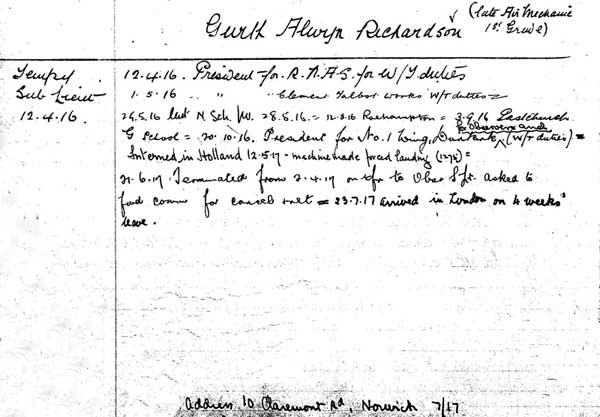 Gurth Alwyn Richardson (late Air Mechanic
1st Grade)
Tempy 12.4.16. President for R.N.A.S. for W/T duties
Sub Lieut 1.5.16 " " " Clement Talbot works W/T duties =
12.4.16. 28.5.16. = Roehampton = 3.9.16 Eastchurch
to Observers and
G School = 20.10.16. President for No.1 Wing, (W/T duties) =
Interned in Holland 12.5.17 - machine made forced landing (1275) =
21.6.17 Terminated from 2.4.17 on tfr to Obsr S/Lt. asked to
fwd comm for cancel = 23.7.17 arrived in London on 4 weeks'
leave.
Address 10 Claremont Rd, Norwich 7/17